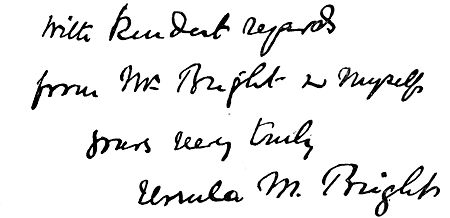 With kindest regards
from Mr Bright & Myself
yours very truly
Ursula M. Bright